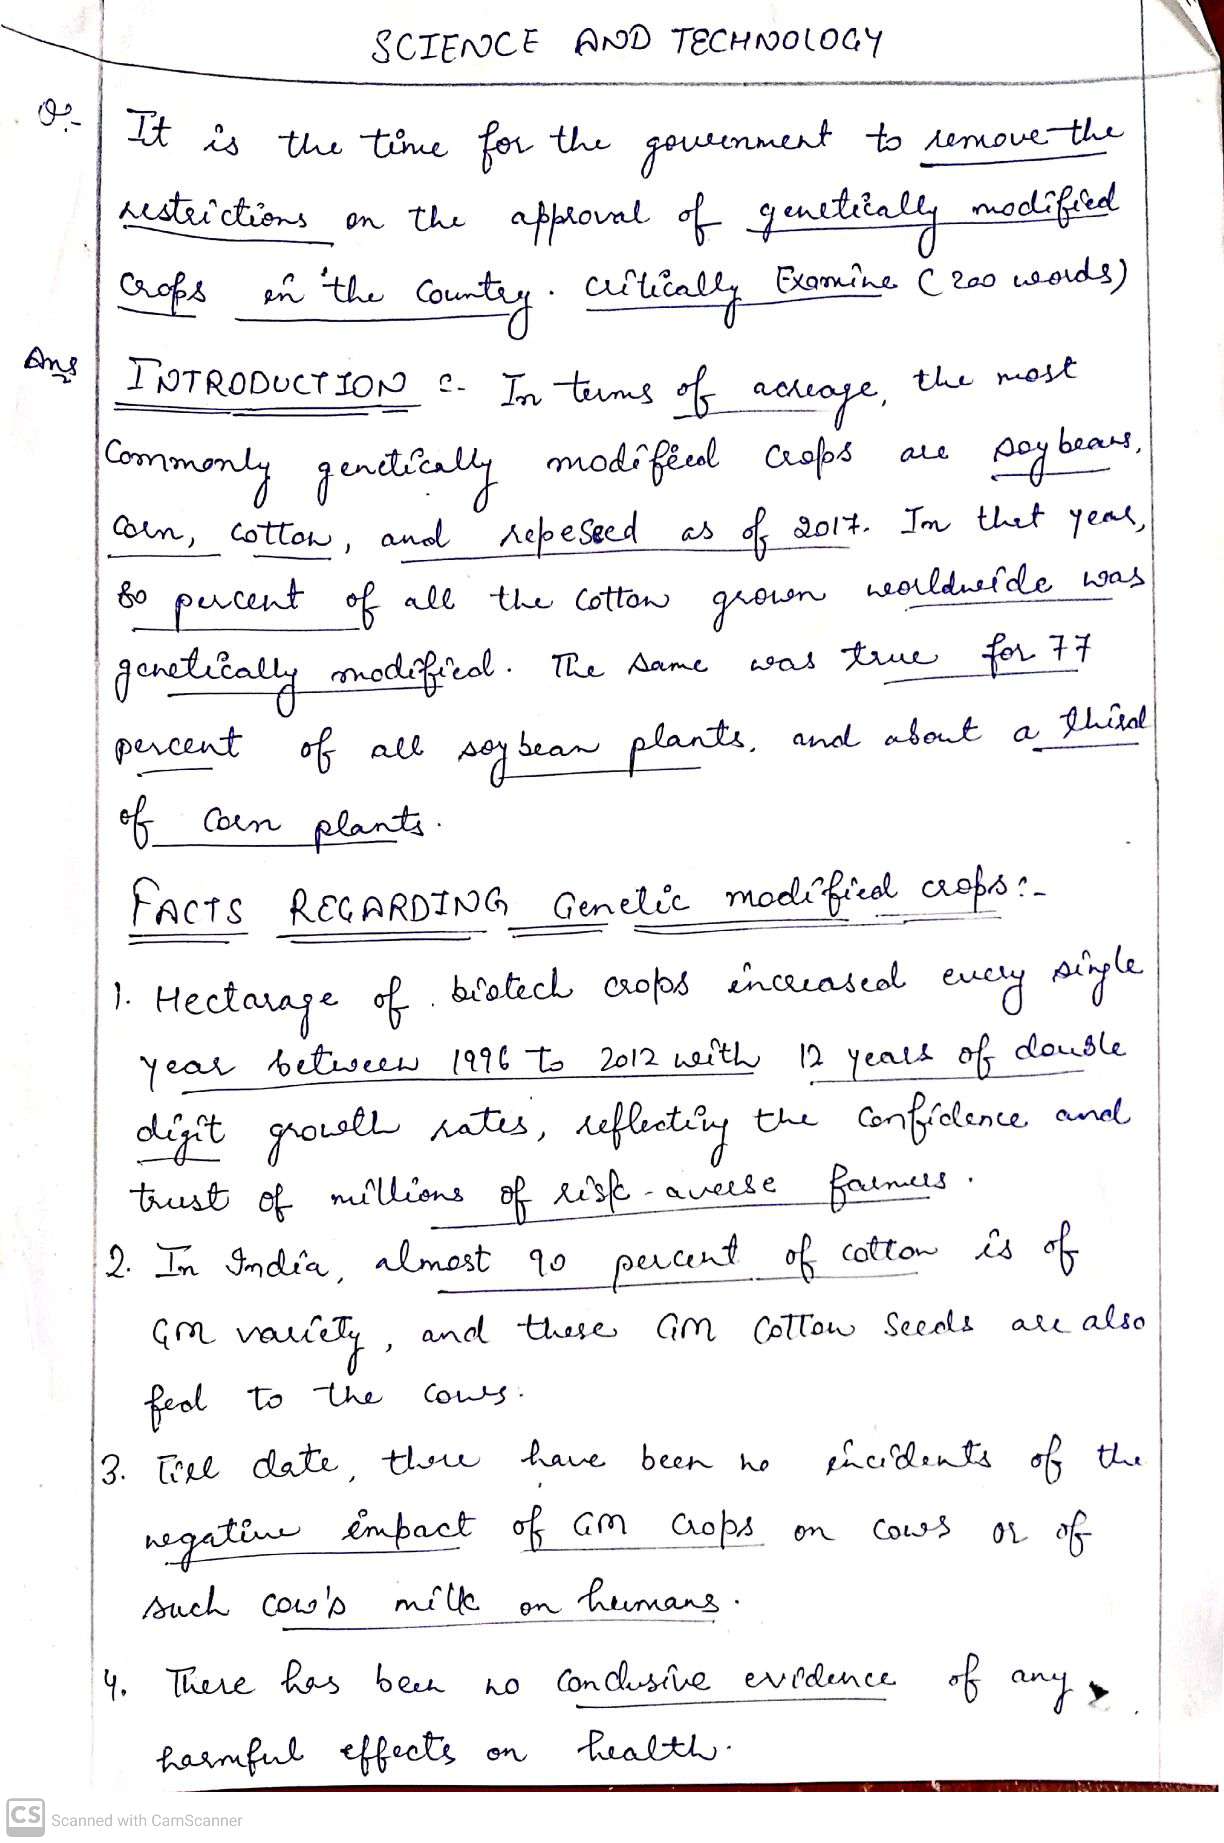 SCIENCE AND TECHNOLOGY
Q:- It is the time for the government to remove the
restrictions on the approval of genetically modified
crops in the country. critically Examine (200 words)
Ans INTRODUCTION :- In terms of acreage, the most
Commonly genetically modified crops are soybeans,
Corn, cotton, and repeseed as of 2017. In thet year,
80 percent of all the cotton grown worldwide was
genetically modified. The same was true for 77
percent of all soybean plants, and about a third
of corn plants.
FACTS REGARDING Genetic modified crops:-
1. Hectarage of biotech crops increased every single
year between 1996 to 2012 with 12 years of double
digit growth rates, reflecting the confidence and
trust of millions of risk-averse farmers.
2. In India, almost 90 percent of cotton is of
GM variety, and these GM Cotton Seeds are also
fed to the cows.
3. Till date, there have been no incidents of the
negative impact of GM crops on cows or of
such cow's milk on humans.
4. There has been no conclusive evidence of any
harmful effects on health.
CS Scanned with CamScanner